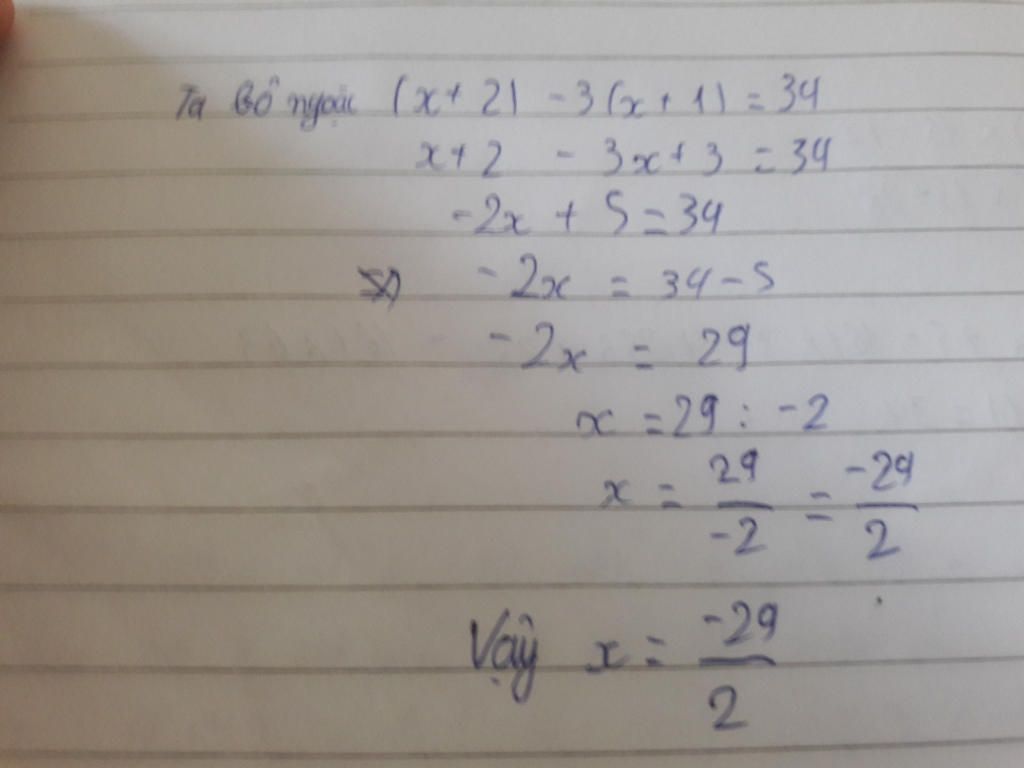 Ta bỏ ngoặc (x + 2) - 3(x + 1) = 34
x + 2 - 3x + 3 = 34
-2x + 5 = 34
-2x = 34 - 5
-2x = 29
x = 29 : -2
x = 29/-2 = -29/2
Vậy x = -29/2